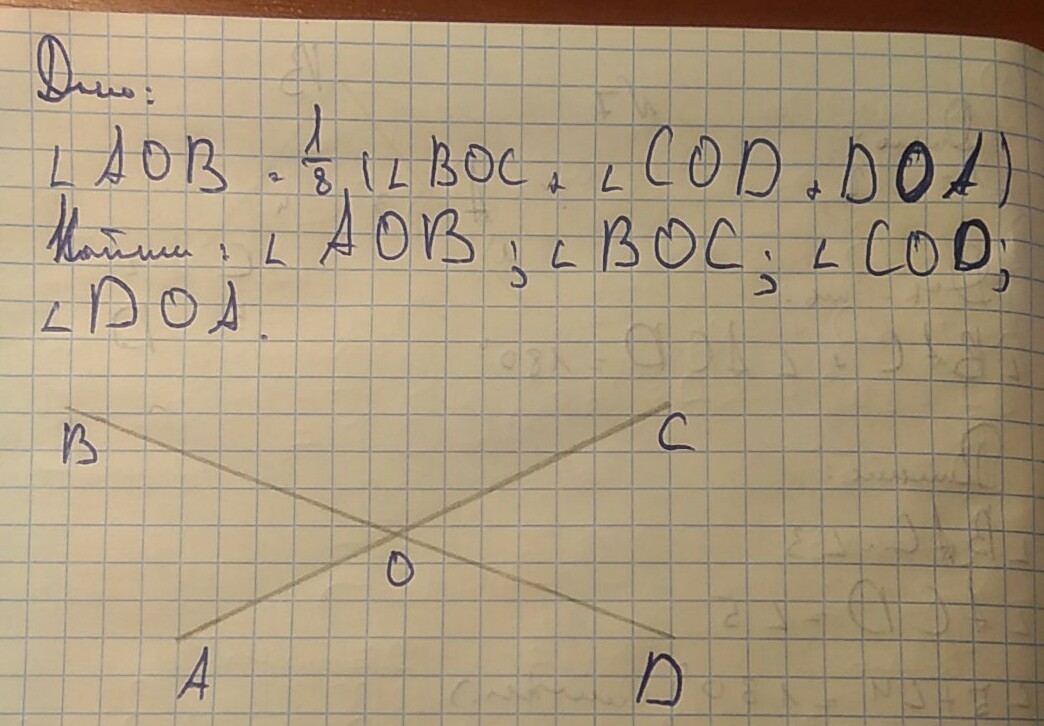 Дано:
∠ AOB = 1/8 (∠ BOC + ∠ COD + DOA)
Найти: ∠ AOB; ∠ BOC; ∠ COD;
∠ DOA.
B
C
O
A
D